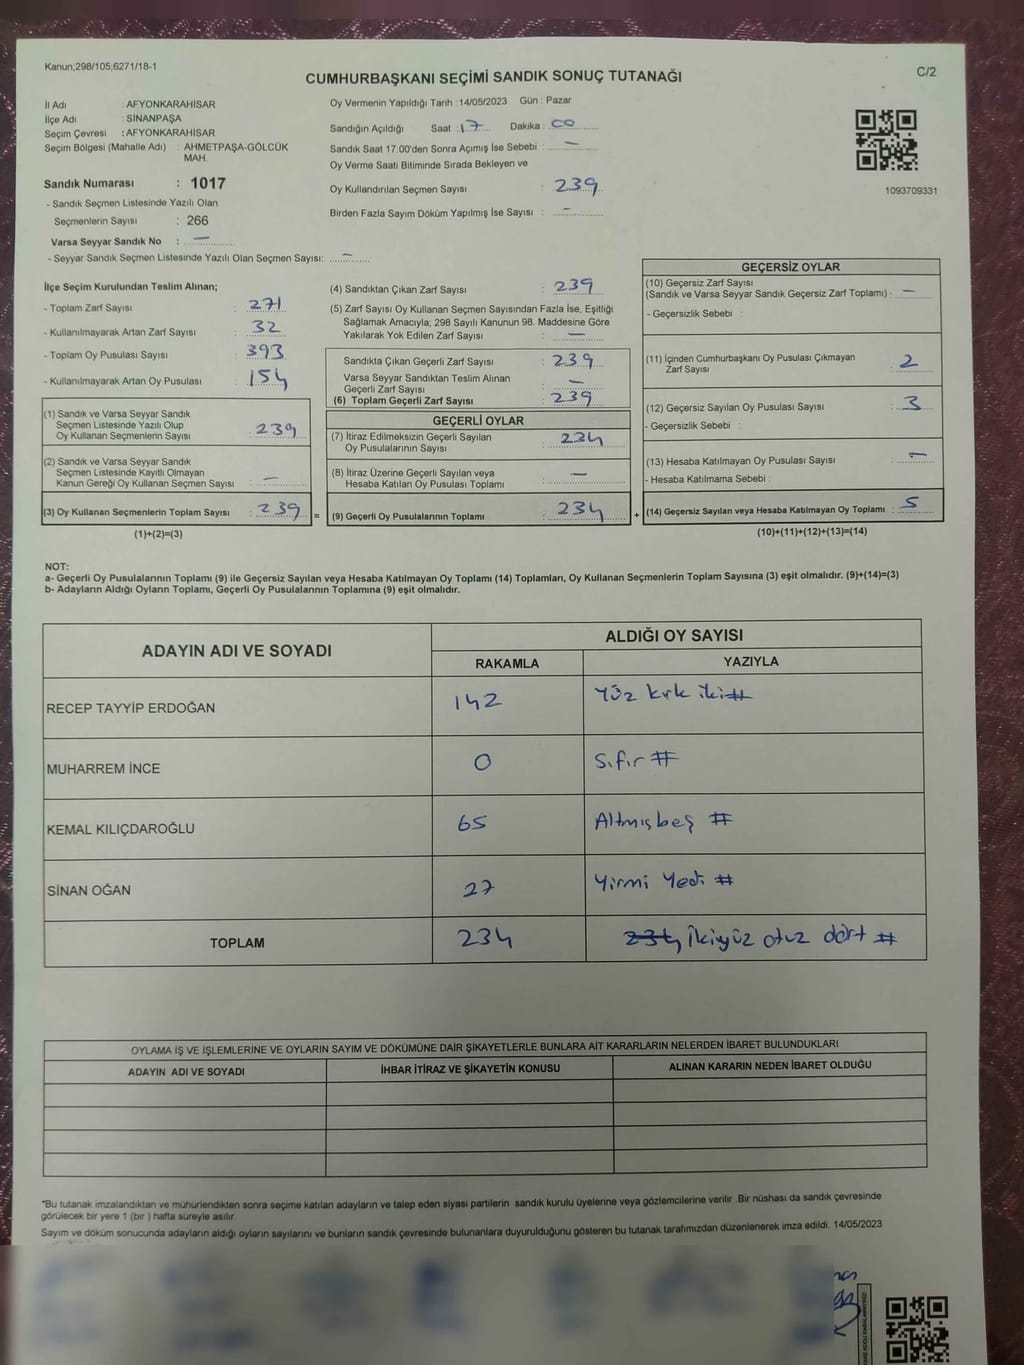 Kanun;298/105;6271/18-1
CUMHURBAŞKANI SEÇİMİ SANDIK SONUÇ TUTANAĞI
C/2
İl Adı : AFYONKARAHİSAR
İlçe Adı : SİNANPAŞA
Seçim Çevresi : AFYONKARAHİSAR
Seçim Bölgesi (Mahalle Adı) : AHMETPAŞA-GÖLCÜK
MAH.
Sandık Numarası : 1017
- Sandık Seçmen Listesinde Yazılı Olan
Seçmenlerin Sayısı : 266
Varsa Seyyar Sandık No : —
- Seyyar Sandık Seçmen Listesinde Yazılı Olan Seçmen Sayısı: —
Oy Vermenin Yapıldığı Tarih : 14/05/2023 Gün : Pazar
Sandığın Açıldığı Saat : 17 Dakika : 00
Sandık Saat 17:00'den Sonra Açımış İse Sebebi : —
Oy Verme Saati Bitiminde Sırada Bekleyen ve
Oy Kullandırılan Seçmen Sayısı : 239
Birden Fazla Sayım Döküm Yapılmış İse Sayısı : —
1093709331
İlçe Seçim Kurulundan Teslim Alınan;
- Toplam Zarf Sayısı : 271
- Kullanılmayarak Artan Zarf Sayısı : 32
- Toplam Oy Pusulası Sayısı : 393
- Kullanılmayarak Artan Oy Pusulası : 154
(1) Sandık ve Varsa Seyyar Sandık
Seçmen Listesinde Yazılı Olup
Oy Kullanan Seçmenlerin Sayısı : 239
(2) Sandık ve Varsa Seyyar Sandık
Seçmen Listesinde Kayıtlı Olmayan
Kanun Gereği Oy Kullanan Seçmen Sayısı : —
(3) Oy Kullanan Seçmenlerin Toplam Sayısı : 239 =
(1)+(2)=(3)
(4) Sandıktan Çıkan Zarf Sayısı : 239
(5) Zarf Sayısı Oy Kullanan Seçmen Sayısından Fazla İse, Eşitliği
Sağlamak Amacıyla; 298 Sayılı Kanunun 98. Maddesine Göre
Yakılarak Yok Edilen Zarf Sayısı : —
Sandıkta Çıkan Geçerli Zarf Sayısı : 239
Varsa Seyyar Sandıktan Teslim Alınan
Geçerli Zarf Sayısı : —
(6) Toplam Geçerli Zarf Sayısı : 239
GEÇERLİ OYLAR
(7) İtiraz Edilmeksizin Geçerli Sayılan
Oy Pusulalarının Sayısı : 234
(8) İtiraz Üzerine Geçerli Sayılan veya
Hesaba Katılan Oy Pusulası Toplamı : —
(9) Geçerli Oy Pusulalarının Toplamı : 234 +
GEÇERSİZ OYLAR
(10) Geçersiz Zarf Sayısı
(Sandık ve Varsa Seyyar Sandık Geçersiz Zarf Toplamı) : —
- Geçersizlik Sebebi :
(11) İçinden Cumhurbaşkanı Oy Pusulası Çıkmayan
Zarf Sayısı : 2
(12) Geçersiz Sayılan Oy Pusulası Sayısı : 3
- Geçersizlik Sebebi :
(13) Hesaba Katılmayan Oy Pusulası Sayısı : —
- Hesaba Katılmama Sebebi :
(14) Geçersiz Sayılan veya Hesaba Katılmayan Oy Toplamı : 5
(10)+(11)+(12)+(13)=(14)
NOT:
a- Geçerli Oy Pusulalarının Toplamı (9) ile Geçersiz Sayılan veya Hesaba Katılmayan Oy Toplamı (14) Toplamları, Oy Kullanan Seçmenlerin Toplam Sayısına (3) eşit olmalıdır. (9)+(14)=(3)
b- Adayların Aldığı Oyların Toplamı, Geçerli Oy Pusulalarının Toplamına (9) eşit olmalıdır.
ADAYIN ADI VE SOYADI
ALDIĞI OY SAYISI
RAKAMLA YAZIYLA
RECEP TAYYİP ERDOĞAN 142 Yüz kırk iki #
MUHARREM İNCE 0 Sıfır #
KEMAL KILIÇDAROĞLU 65 Altmışbeş #
SİNAN OĞAN 27 Yirmi Yedi #
TOPLAM 234 234 ikiyüz otuz dört #
OYLAMA İŞ VE İŞLEMLERİNE VE OYLARIN SAYIM VE DÖKÜMÜNE DAİR ŞİKAYETLERLE BUNLARA AİT KARARLARIN NELERDEN İBARET BULUNDUKLARI
ADAYIN ADI VE SOYADI İHBAR İTİRAZ VE ŞİKAYETİN KONUSU ALINAN KARARIN NEDEN İBARET OLDUĞU
*Bu tutanak imzalandıktan ve mühürlendikten sonra seçime katılan adayların ve talep eden siyasi partilerin sandık kurulu üyelerine veya gözlemcilerine verilir. Bir nüshası da sandık çevresinde
görülecek bir yere 1 (bir ) hafta süreyle asılır.
Sayım ve döküm sonucunda adayların aldığı oyların sayılarını ve bunların sandık çevresinde bulunanlara duyurulduğunu gösteren bu tutanak tarafımızdan düzenlenerek imza edildi. 14/05/2023